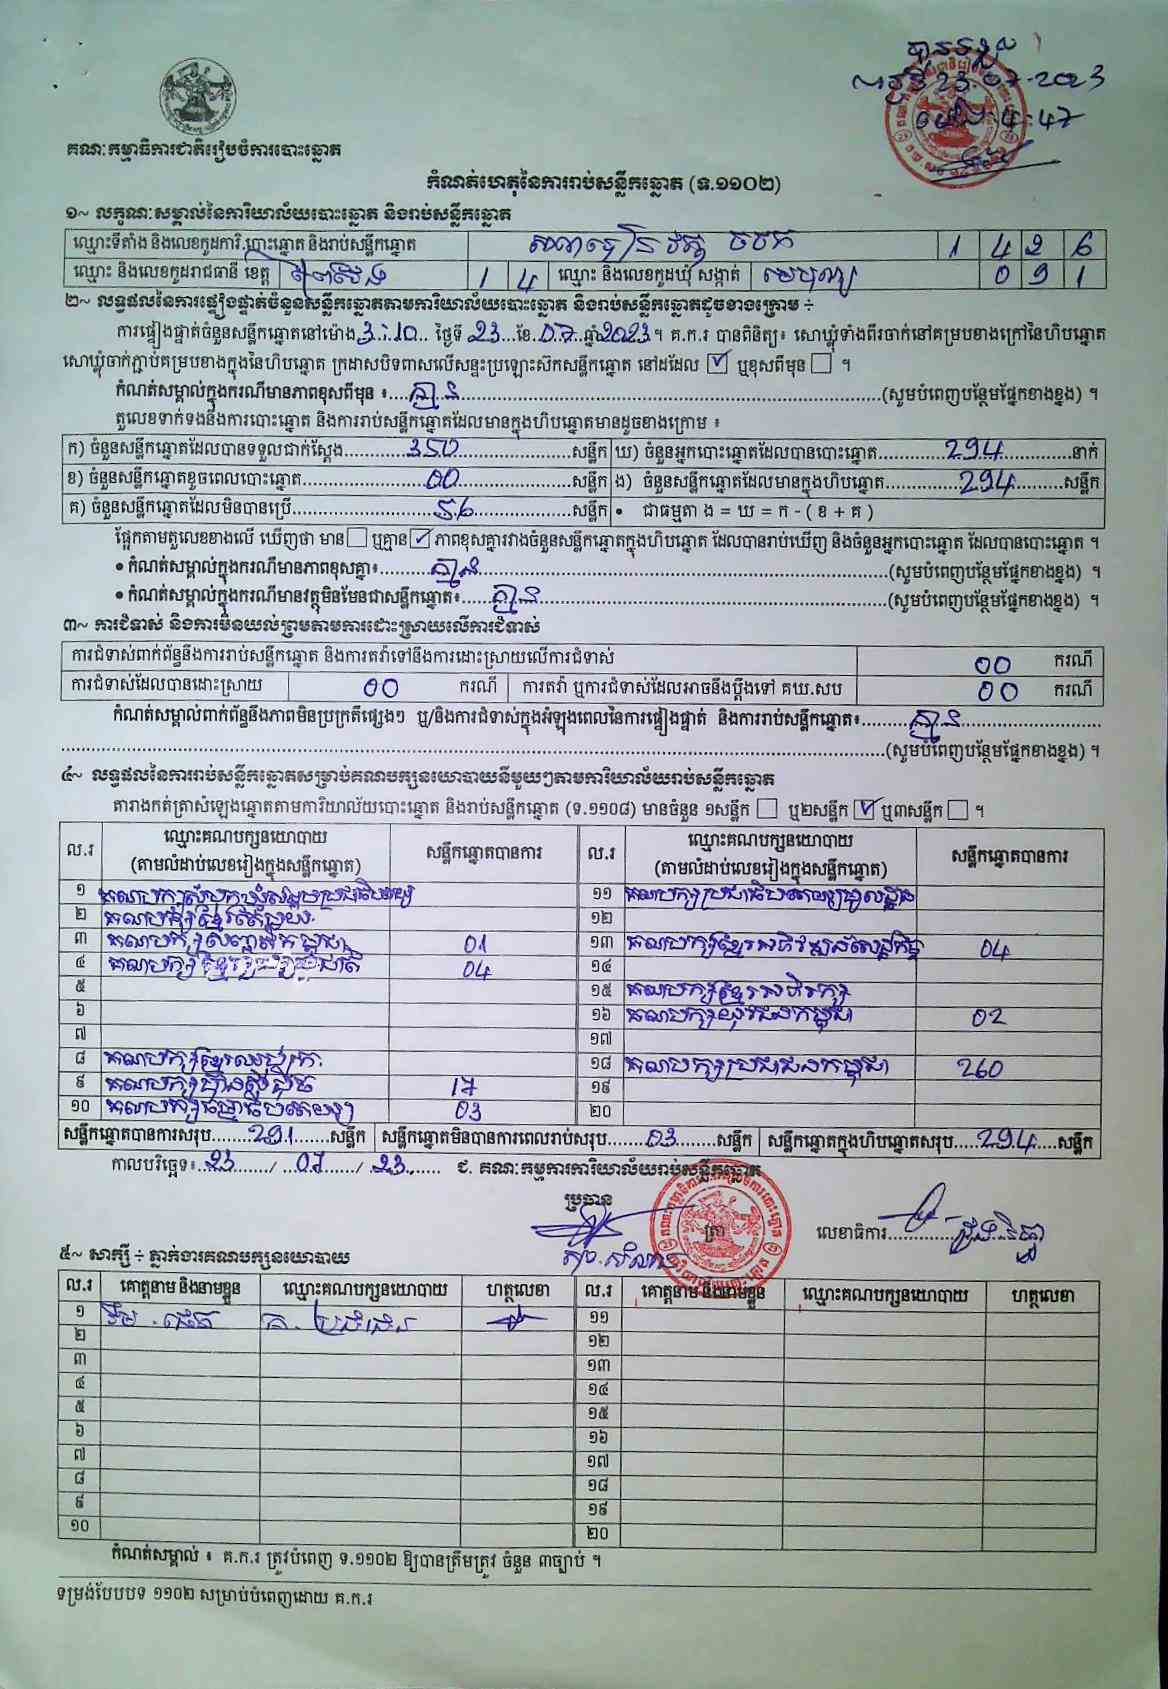 បានទទួល
23-07-2023
ម៉ោង 4:47
គណៈកម្មាធិការជាតិរៀបចំការបោះឆ្នោត
កំណត់ហេតុនៃការរាប់សន្លឹកឆ្នោត (ទ.១១០២)
១~ លក្ខណៈសម្គាល់នៃការិយាល័យបោះឆ្នោត និងរាប់សន្លឹកឆ្នោត
ឈ្មោះទីតាំង និងលេខកូដការិ.បោះឆ្នោត និងរាប់សន្លឹកឆ្នោត 1 4 2 6
ឈ្មោះ និងលេខកូដរាជធានី ខេត្ត ព្រៃវែង 1 4 ឈ្មោះ និងលេខកូដឃុំ សង្កាត់ 0 9 1
២~ លទ្ធផលនៃការផ្ទៀងផ្ទាត់ចំនួនសន្លឹកឆ្នោតតាមការិយាល័យបោះឆ្នោត និងរាប់សន្លឹកឆ្នោតដូចខាងក្រោម ÷
ការផ្ទៀងផ្ទាត់ចំនួនសន្លឹកឆ្នោតនៅម៉ោង 3:10 ថ្ងៃទី 23 ខែ 07 ឆ្នាំ 2023 ។ គ.ក.រ បានពិនិត្យ៖ សោឃ្លុំទាំងពីរចាក់នៅគម្របខាងក្រៅនៃហិបឆ្នោត
សោឃ្លុំចាក់ភ្ជាប់គម្របខាងក្នុងនៃហិបឆ្នោត ក្រដាសបិទពាសលើសន្ទះប្រឡោះស៊កសន្លឹកឆ្នោត នៅដដែល ☑ ឬខុសពីមុន ☐ ។
កំណត់សម្គាល់ក្នុងករណីមានភាពខុសពីមុន ៖ គ្មាន (សូមបំពេញបន្ថែមផ្នែកខាងខ្នង) ។
តួលេខទាក់ទងនឹងការបោះឆ្នោត និងការរាប់សន្លឹកឆ្នោតដែលមានក្នុងហិបឆ្នោតមានដូចខាងក្រោម ៖
ក) ចំនួនសន្លឹកឆ្នោតដែលបានទទួលជាក់ស្តែង 350 សន្លឹក ឃ) ចំនួនអ្នកបោះឆ្នោតដែលបានបោះឆ្នោត 294 នាក់
ខ) ចំនួនសន្លឹកឆ្នោតខូចពេលបោះឆ្នោត 00 សន្លឹក ង) ចំនួនសន្លឹកឆ្នោតដែលមានក្នុងហិបឆ្នោត 294 សន្លឹក
គ) ចំនួនសន្លឹកឆ្នោតដែលមិនបានប្រើ 56 សន្លឹក • ជាធម្មតា ង = ឃ = ក - ( ខ + គ )
ផ្អែកតាមតួលេខខាងលើ ឃើញថា មាន ☐ ឬគ្មាន ☑ ភាពខុសគ្នារវាងចំនួនសន្លឹកឆ្នោតក្នុងហិបឆ្នោត ដែលបានរាប់ឃើញ និងចំនួនអ្នកបោះឆ្នោត ដែលបានបោះឆ្នោត ។
• កំណត់សម្គាល់ក្នុងករណីមានភាពខុសគ្នា៖ គ្មាន (សូមបំពេញបន្ថែមផ្នែកខាងខ្នង) ។
• កំណត់សម្គាល់ក្នុងករណីមានវត្ថុមិនមែនជាសន្លឹកឆ្នោត៖ គ្មាន (សូមបំពេញបន្ថែមផ្នែកខាងខ្នង) ។
៣~ ការជំទាស់ និងការមិនយល់ព្រមតាមការដោះស្រាយលើការជំទាស់
ការជំទាស់ពាក់ព័ន្ធនឹងការរាប់សន្លឹកឆ្នោត និងការតវ៉ាទៅនឹងការដោះស្រាយលើការជំទាស់ 00 ករណី
ការជំទាស់ដែលបានដោះស្រាយ 00 ករណី ការតវ៉ា ឬការជំទាស់ដែលអាចនឹងប្តឹងទៅ គឃ.សប 00 ករណី
កំណត់សម្គាល់ពាក់ព័ន្ធនឹងភាពមិនប្រក្រតីផ្សេងៗ ឬ/និងការជំទាស់ក្នុងអំឡុងពេលនៃការផ្ទៀងផ្ទាត់ និងការរាប់សន្លឹកឆ្នោត៖ គ្មាន
(សូមបំពេញបន្ថែមផ្នែកខាងខ្នង) ។
៤~ លទ្ធផលនៃការរាប់សន្លឹកឆ្នោតសម្រាប់គណបក្សនយោបាយនីមួយៗតាមការិយាល័យរាប់សន្លឹកឆ្នោត
តារាងកត់ត្រាសំឡេងឆ្នោតតាមការិយាល័យបោះឆ្នោត និងរាប់សន្លឹកឆ្នោត (ទ.១១០៨) មានចំនួន ១សន្លឹក ☐ ឬ២សន្លឹក ☑ ឬ៣សន្លឹក ☐ ។
ល.រ ឈ្មោះគណបក្សនយោបាយ (តាមលំដាប់លេខរៀងក្នុងសន្លឹកឆ្នោត) សន្លឹកឆ្នោតបានការ ល.រ ឈ្មោះគណបក្សនយោបាយ (តាមលំដាប់លេខរៀងក្នុងសន្លឹកឆ្នោត) សន្លឹកឆ្នោតបានការ
១ គណបក្សសំបុកឃ្មុំសង្គមប្រជាធិបតេយ្យ ១១ គណបក្សប្រជាធិបតេយ្យមូលដ្ឋាន
២ គណបក្ស ១២
៣ គណបក្ស 01 ១៣ គណបក្សខ្មែរអភិវឌ្ឍន៍សេដ្ឋកិច្ច 04
៤ គណបក្សខ្មែរ ជាតិ 04 ១៤
៥ ១៥ គណបក្សខ្មែរអភិរក្ស
៦ ១៦ គណបក្សយុវជនកម្ពុជា 02
៧ ១៧
៨ គណបក្សខ្មែរ ១៨ គណបក្សប្រជាជនកម្ពុជា 260
៩ គណបក្សហ្វ៊ុនស៊ិនប៉ិច 17 ១៩
១០ គណបក្សធម្មាធិបតេយ្យ 03 ២០
សន្លឹកឆ្នោតបានការសរុប 291 សន្លឹក សន្លឹកឆ្នោតមិនបានការពេលរាប់សរុប 03 សន្លឹក សន្លឹកឆ្នោតក្នុងហិបឆ្នោតសរុប 294 សន្លឹក
កាលបរិច្ឆេទ៖ 23 / 07 / 23 ជ. គណៈកម្មការការិយាល័យរាប់សន្លឹកឆ្នោត
ប្រធាន
ត្រា
លេខាធិការ
៥~ សាក្សី ÷ ភ្នាក់ងារគណបក្សនយោបាយ
ល.រ គោត្តនាម និងនាមខ្លួន ឈ្មោះគណបក្សនយោបាយ ហត្ថលេខា ល.រ គោត្តនាម និងនាមខ្លួន ឈ្មោះគណបក្សនយោបាយ ហត្ថលេខា
១ គ. ប្រជាជន ១១
២ ១២
៣ ១៣
៤ ១៤
៥ ១៥
៦ ១៦
៧ ១៧
៨ ១៨
៩ ១៩
១០ ២០
កំណត់សម្គាល់ ៖ គ.ក.រ ត្រូវបំពេញ ទ.១១០២ ឱ្យបានត្រឹមត្រូវ ចំនួន ៣ច្បាប់ ។
ទម្រង់បែបបទ ១១០២ សម្រាប់បំពេញដោយ គ.ក.រ